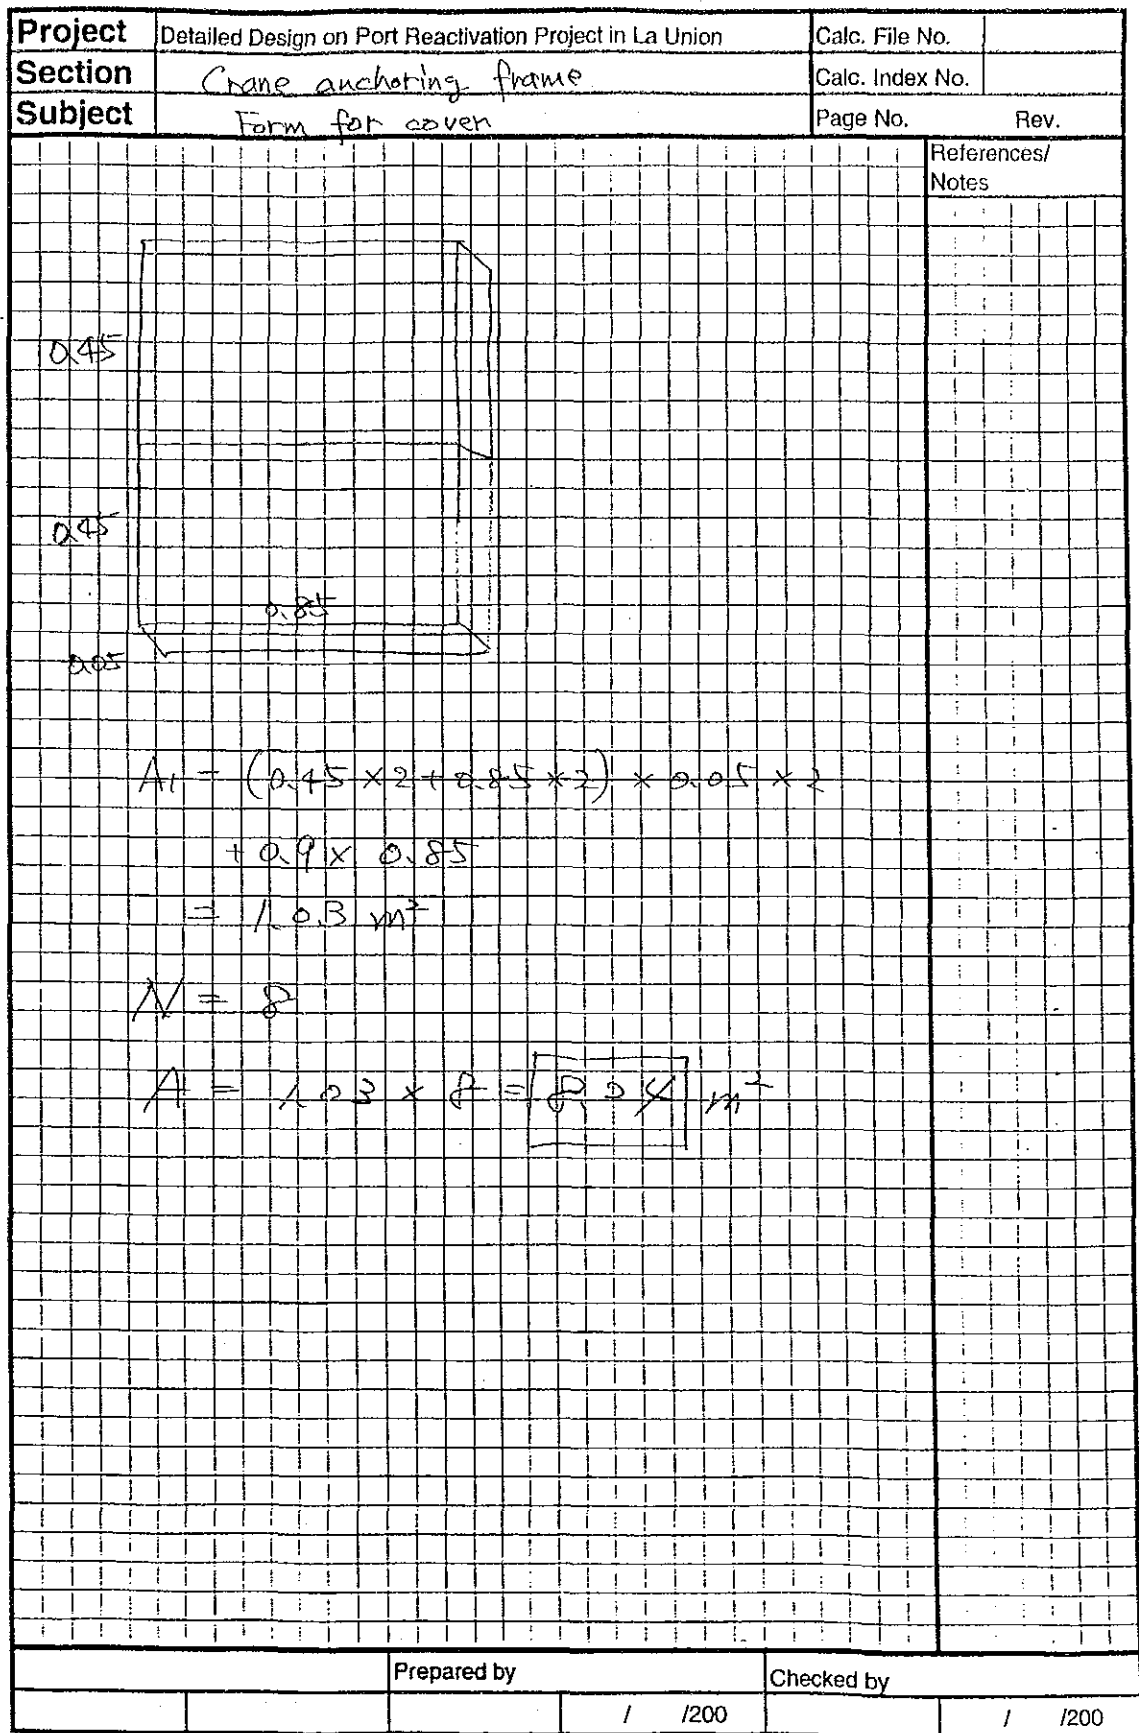 Project Detailed Design on Port Reactivation Project in La Union Calc. File No.
Section Crane anchoring frame Calc. Index No.
Subject Form for cover Page No. Rev.
References/
Notes
0.45
0.45
0.85
0.05
A1 = (0.45 × 2 + 0.85 × 2) × 0.05 × 2
+ 0.9 × 0.85
= 1.03 m²
N = 8
A = 1.03 × 8 = 8.24 m²
Prepared by Checked by
/ /200 / /200